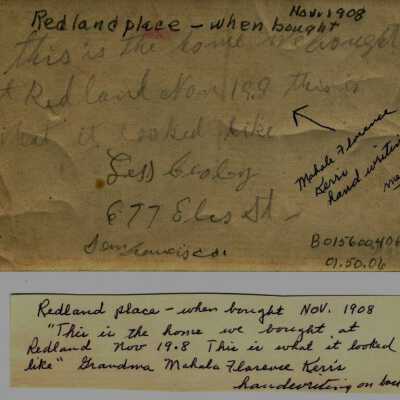 Nov. 1908
Redland place - when bought
this is the home we bought
at Redland Nov 19.8 this is
what it looked like
Mahala Florence
Kerr's
hand writing
677 St
San Francisco
B015600406
01.50.06
Redland place - when bought NOV. 1908
"This is the home we bought at
Redland Nov 19.8 This is what it looked
like" Grandma Mahala Florence Kerr's
handwriting on back